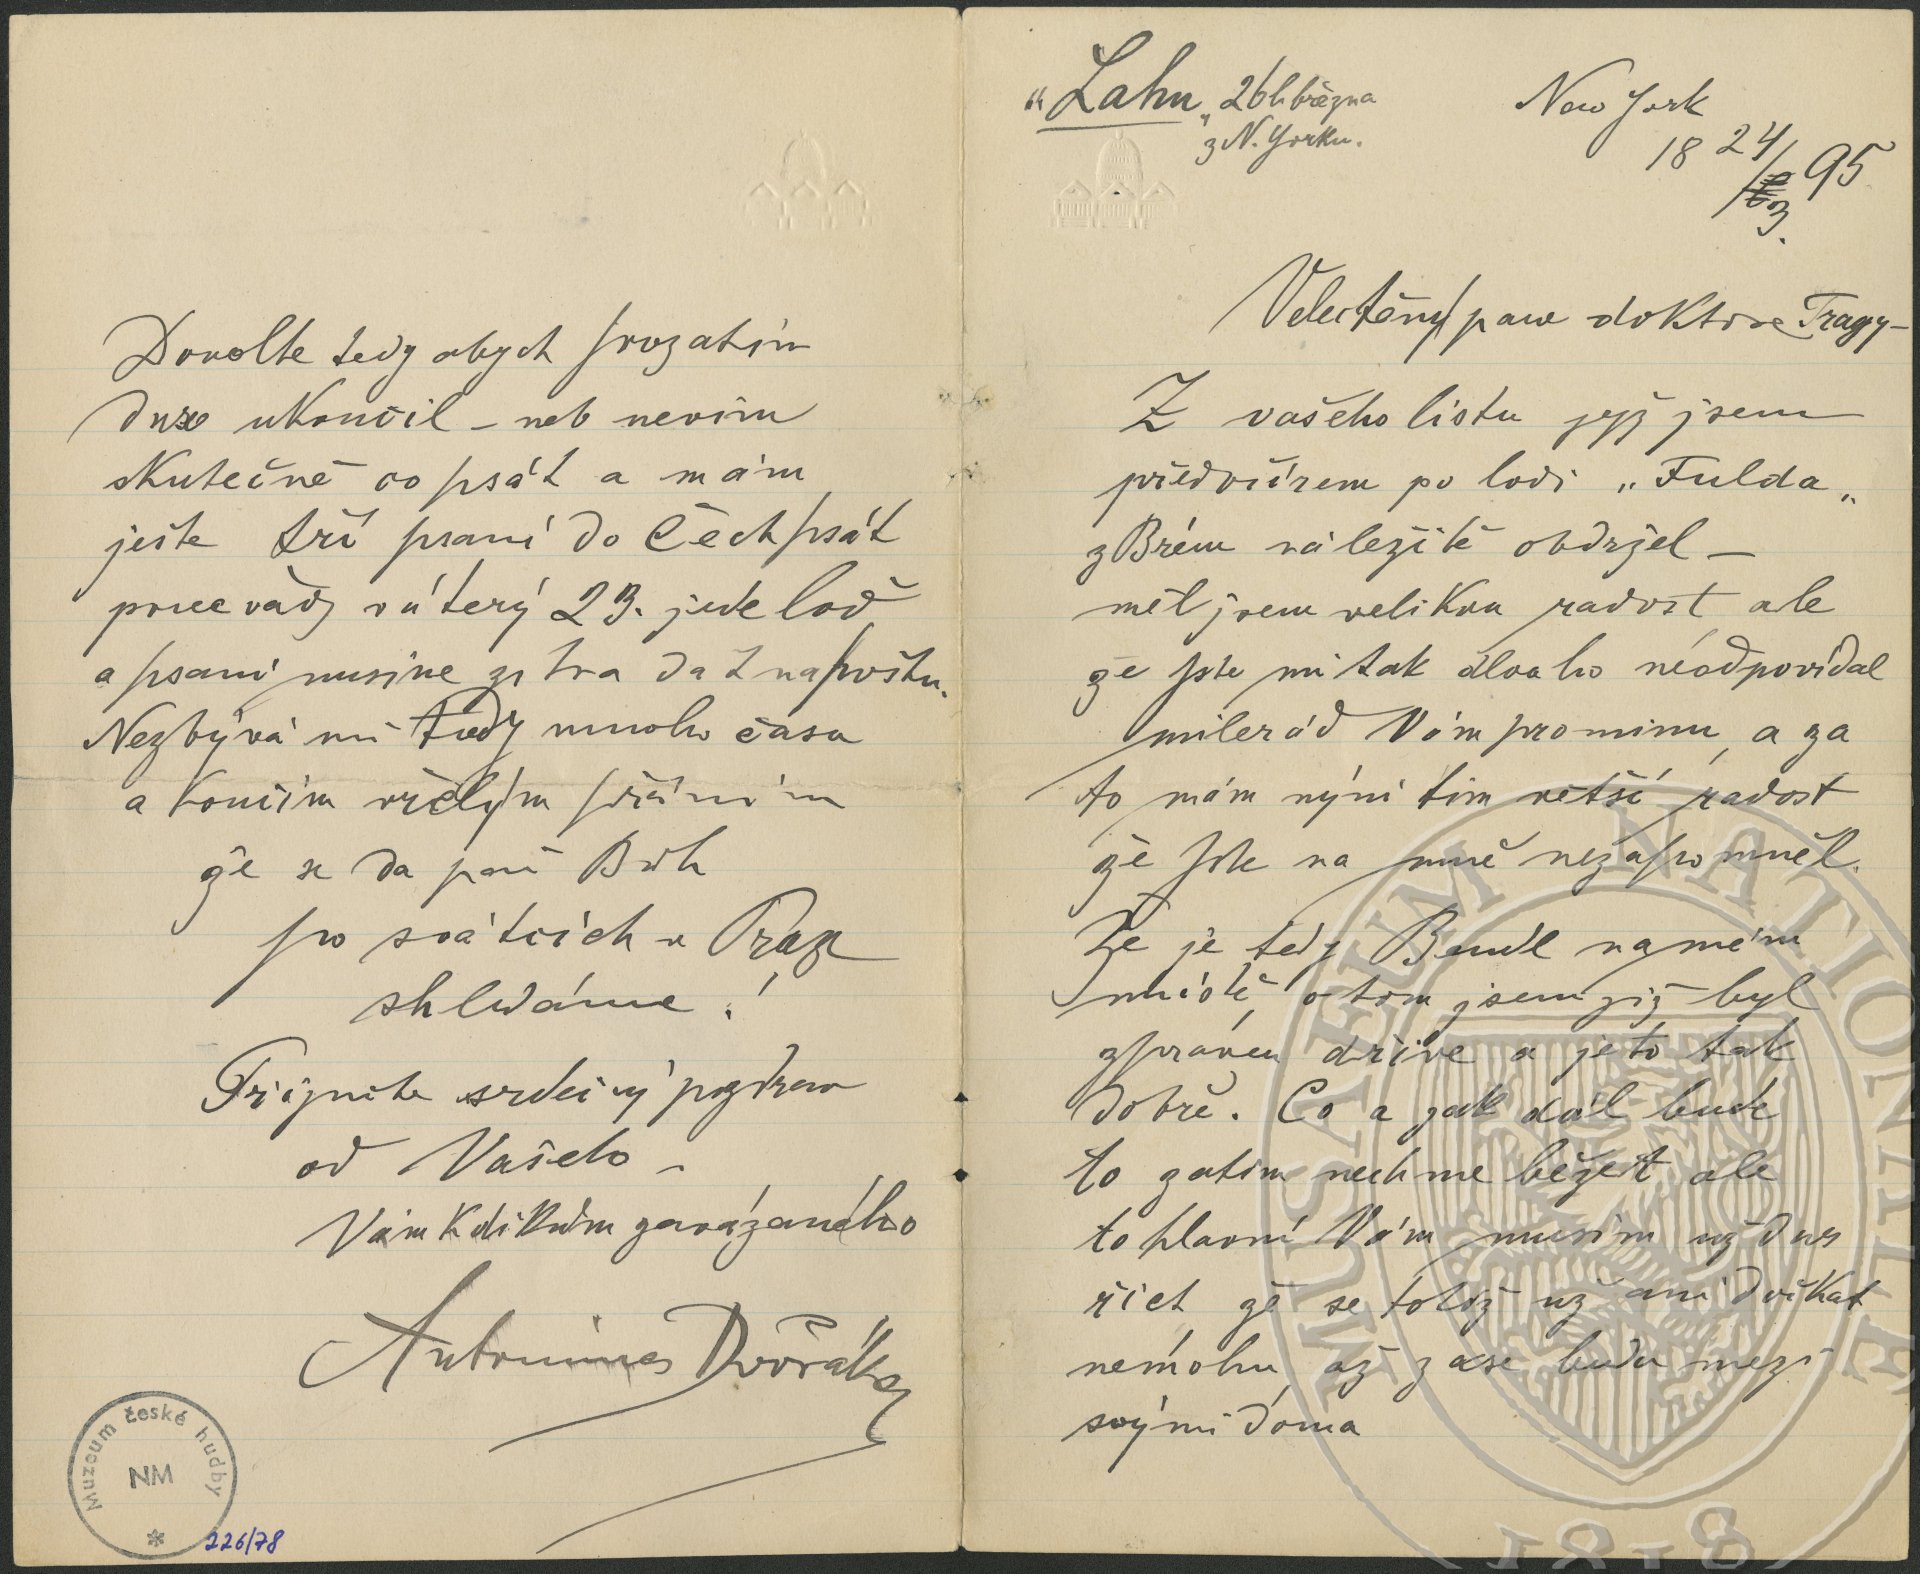 „Lahn„ 26h března
z N. Yorku.
New York
18 24/3. 95
Velectěný pane doktore Tragy –
Z vašeho listu jejž jsem
předvčírem po lodi „Fulda„
z Brém náležitě obdržel –
měl jsem velikou radost, ale
že jste mi tak dlouho neodpovídal
milerád Vám prominu, a za
to mám nyní tim větší radost
že jste na mně nezapomněl.
Že je tedy Bendl na mém
místě, o tom jsem již byl
zpraven dříve a je to tak
dobře. Co a jak dál bude
to zatim nechme běžet ale
to hlavní Vám musím už dnes
říct že se totiž už ani dočkat
nemohu, až zase budu mezi
svými doma
Dovolte tedy abych prozatim
dnes ukončil – neb nevim
skutečně co psát a mám
ješte tři psaní do Čech psát
v úterý 23. jede loď
a psaní musíme zitra dat na poštu.
Nezbývá mi tedy mnoho času
a končím vřelým přáním
že se da pan Bůh
po svátcích v Praze
shledáme!
Přijměte srdečný pozdrav
od Vašeho –
Vám k díkům zavázaného
Antonína Dvořáka
Muzeum české hudby
NM
226/78
MUSAEUM NATIONALE
1818